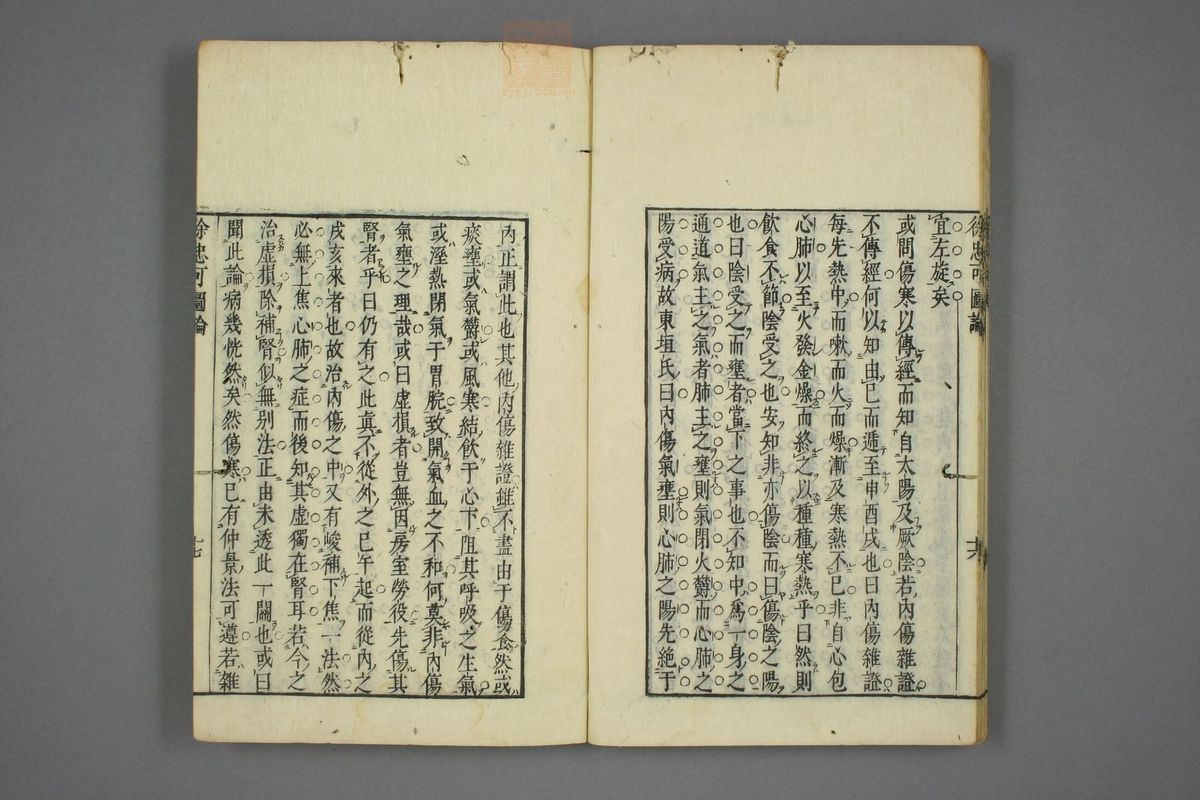 徐忠可圖論
宜左旋矣
或問傷寒以傳經而知自太陽及厥陰若內傷雜證
不傳經何以知由巳而遞至申酉戌也曰內傷雜證
每先熱中而嗽而火而燥漸及寒熱不已非自心包
心肺以至火發金燥而終之以種種寒熱乎曰然則
飲食不節陰受之也安知非亦傷陰而曰傷陰之陽
也曰陰受之而壅者當下之事也不知中爲一身之
通道氣主之氣者肺主之壅則氣閉火鬱而心肺之
陽受病故東垣氏曰內傷氣壅則心肺之陽先絶于
十六
內正謂此也其他內傷雜證雖不盡由于傷食然或
痰壅或氣鬱或風寒結飲于心下阻其呼吸之生氣
或溼熱閉氣于胃脘致開氣血之不和何莫非內傷
氣壅之理哉或曰虛損者豈無因房室勞役先傷其
腎者乎曰仍有之此眞不從外之巳午起而從內之
戌亥來者也故治內傷之中又有峻補下焦一法然
必無上焦心肺之症而後知其虛獨在腎耳若今之
治虛損除補腎似無別法正由未透此一關也或曰
聞此論病幾恍然矣然傷寒已有仲景法可遵若雜
徐忠可圖論
十七